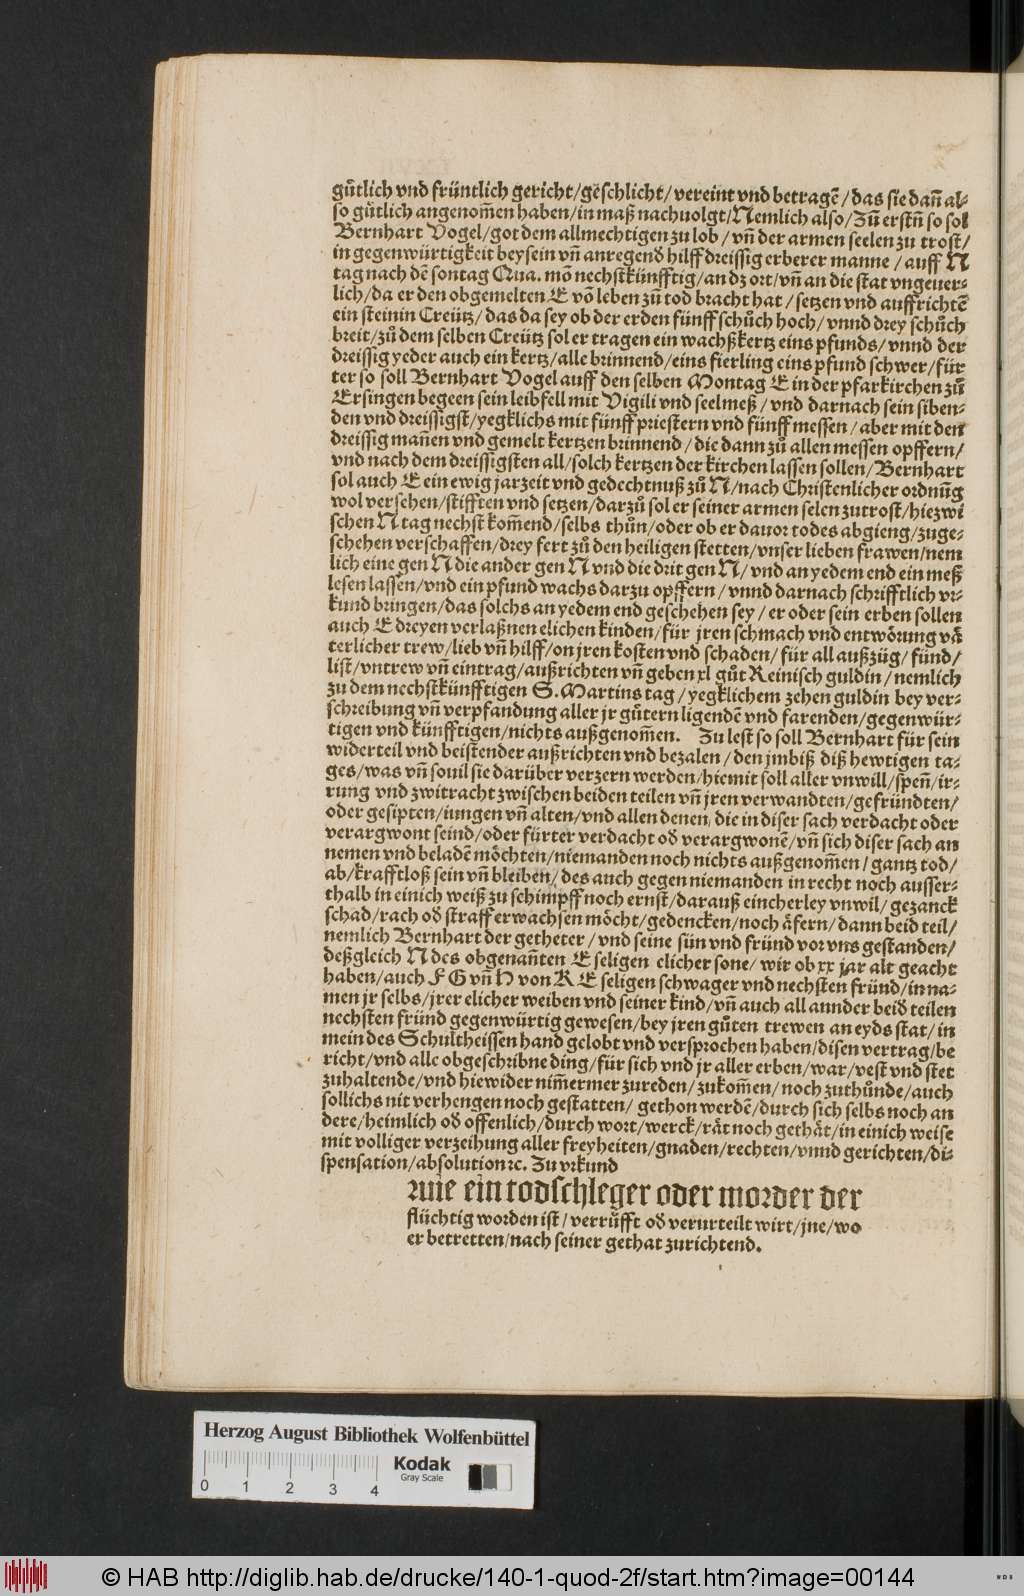 gůtlich vnd früntlich gericht/geschlicht/vereint vnd betragē/das sie dañ al-
so gůtlich angenom̃en haben/in maß nachuolgt/Nemlich also/Zũ erstñ so sol
Bernhart Vogel/got dem allmechtigen zu lob/vñ der armen seelen zu trost/
in gegenwürtigkeit beysein vñ anregend hilff dreissig erberer manne/auff N
tag nach dē sontag Qua. mõ nechstkünfftig/an dz ort/vñ an die stat vngeuer-
lich/da er den obgemelten E võ leben zů tod bracht hat/setzen vnd auffrichtē
ein steinin Creütz/das da sey ob der erden fünff schůch hoch/vnnd drey schůch
breit/zů dem selben Creütz sol er tragen ein wachßkertz eins pfunds/vnnd der
dreissig yeder auch ein kertz/alle brinnend/eins fierling eins pfund schwer/für
ter so soll Bernhart Vogel auff den selben Montag E in der pfarkirchen zů
Ersingen begeen sein leibfell mit Vigili vnd seelmeß/vnd darnach sein siben-
den vnd dreissigst/yegklichs mit fünff priestern vnd fünff messen/aber mit den
dreissig mañen vnd gemelt kertzen brinnend/die dann zů allen messen opffern/
vnd nach dem dreissigsten all/solch kertzen der kirchen lassen sollen/Bernhart
sol auch E ein ewig jarzeit vnd gedechtnuß zů N/nach Christenlicher ordnũg
wol versehen/stifften vnd setzen/darzů sol er seiner armen selen zutrost/hiezwi
schen N tag nechst kom̃end/selbs thůn/oder ob er dauor todes abgieng/zuge-
schehen verschaffen/drey fert zů den heiligen stetten/vnser lieben frawen/nem
lich eine gen N die ander gen N vnd die drit gen N/vnd an yedem end ein meß
lesen lassen/vnd ein pfund wachs darzu opffern/vnnd darnach schrifftlich vr-
kund bringen/das solchs an yedem end geschehen sey/er oder sein erben sollen
auch E dreyen verlaßnen elichen kinden/für jren schmach vnd entwörung vä
terlicher trew/lieb vñ hilff/on jren kosten vnd schaden/für all außzüg/fünd/
list/vntrew vñ eintrag/außrichten vñ geben xl gůt Reinisch guldin/nemlich
zu dem nechstkünfftigen S. Martins tag/yegklichem zehen guldin bey ver-
schreibung vñ verpfandung aller jr gůtern ligendē vnd farenden/gegenwür-
tigen vnd künfftigen/nichts außgenom̃en. Zu lest so soll Bernhart für sein
widerteil vnd beistender außrichten vnd bezalen/den jmbiß diß hewtigen ta-
ges/was vñ souil sie darüber verzern werden/hiemit soll aller vnwill/speñ/ir-
rung vnd zwitracht zwischen beiden teilen vñ jren verwandten/gefründten/
oder gesipten/iungen vñ alten/vnd allen denen, die in diser sach verdacht oder
verargwont seind/oder fürter verdacht od verargwonē/vñ sich diser sach an
nemen vnd beladē möchten/niemanden noch nichts außgenom̃en/gantz tod/
ab/krafftloß sein vñ bleiben/des auch gegen niemanden in recht noch ausser-
thalb in einich weiß zu schimpff noch ernst/darauß eincherley vnwil/gezanck
schad/rach od straff erwachsen möcht/gedencken/noch äfern/dann beid teil/
nemlich Bernhart der getheter/vnd seine sün vnd fründ vor vns gestanden/
deßgleich N des obgenañten E seligen elicher sone/wir ob xx jar alt geacht
haben/auch F G vñ H von K E seligen schwager vnd nechsten fründ/in na-
men jr selbs/jrer elicher weiben vnd seiner kind/vñ auch all annder beid teilen
nechsten fründ gegenwürtig gewesen/bey jren gůten trewen an eyds stat/in
mein des Schultheissen hand gelobt vnd versprochen haben/disen vertrag/be
richt/vnd alle obgeschribne ding/für sich vnd jr aller erben/war/vest vnd stet
zuhaltende/vnd hiewider nim̃ermer zureden/zukom̃en/noch zuthůnde/auch
sollichs nit verhengen noch gestatten/gethon werdē/durch sich selbs noch an
dere/heimlich od offenlich/durch wort/werck/rät noch gethät/in einich weise
mit volliger verzeihung aller freyheiten/gnaden/rechten/vnnd gerichten/di-
spensation/absolution ⁊c. Zu vrkund
Wie ein todschleger oder morder der
flüchtig worden ist/verrüfft od verurteilt wirt/jne/wo
er betretten/nach seiner gethat zurichtend.
Herzog August Bibliothek Wolfenbüttel
Kodak
Gray Scale
0 1 2 3 4
© HAB http://diglib.hab.de/drucke/140-1-quod-2f/start.htm?image=00144